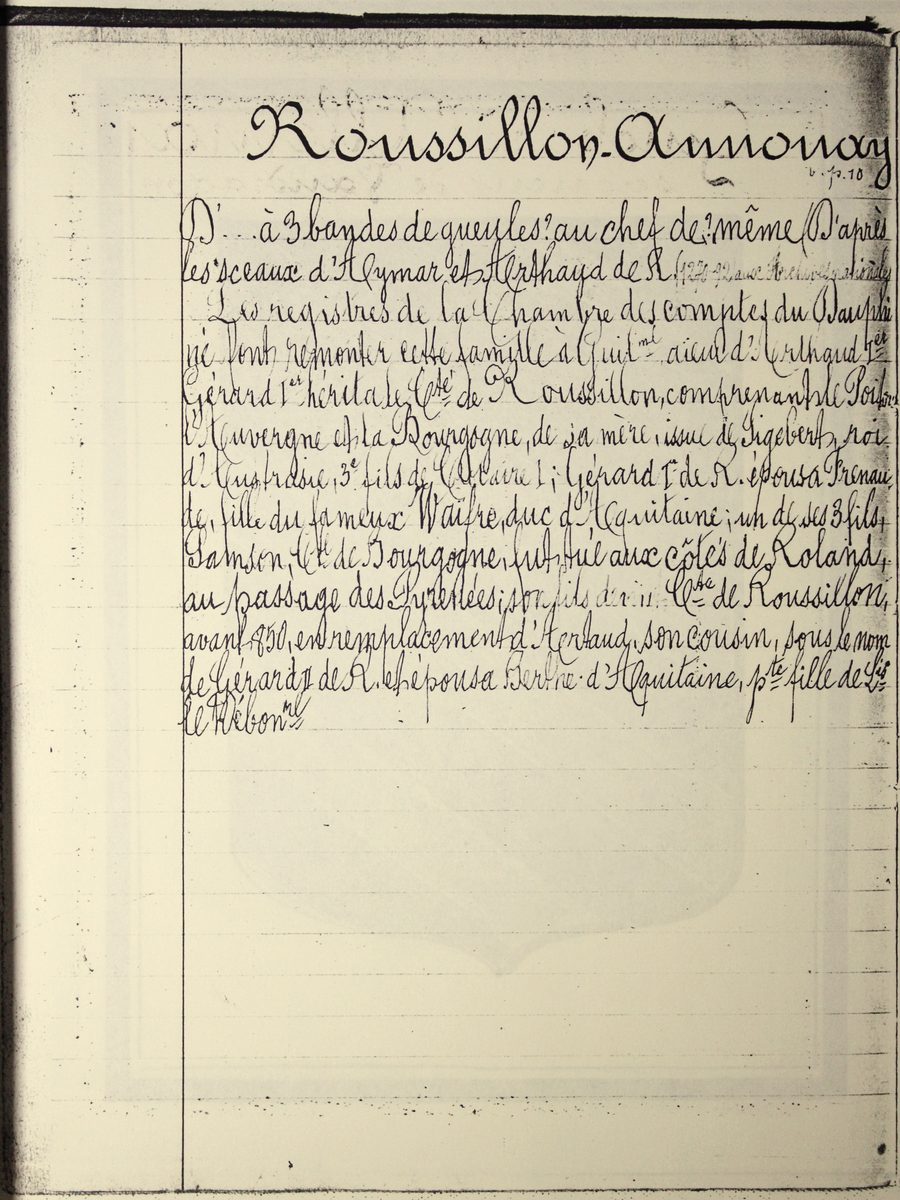 Roussillon-Annonay
v. p. 10
D'... à 3 bandes de gueules? au chef de? même (D'après
les sceaux d'Aymar et Arthaud de R. (1270-92 aux Archives nationales
Les registres de la Chambre des comptes du Dauphi
né font remonter cette famille à Guilme aïeul d'Arthaud Ier
Gérard Ier hérita le Cté de Roussillon, comprenant le Poitou
l'Auvergne et la Bourgogne, de sa mère, issue de Sigebert, roi
d'Austrasie, 3e fils de Clotaire I; Gérard Ier de R. épousa Frenau
de, fille du fameux Waïfre, duc d'Aquitaine; un de ses 3 fils,
Samson, Cte de Bourgogne, fut tué aux côtés de Roland,
au passage des Pyrénées; son fils devint Cte de Roussillon,
avant 850, en remplacement d'Artaud, son cousin, sous le nom
de Gérard II de R. et épousa Berthe d'Aquitaine, pte fille de Lis
le Débonre